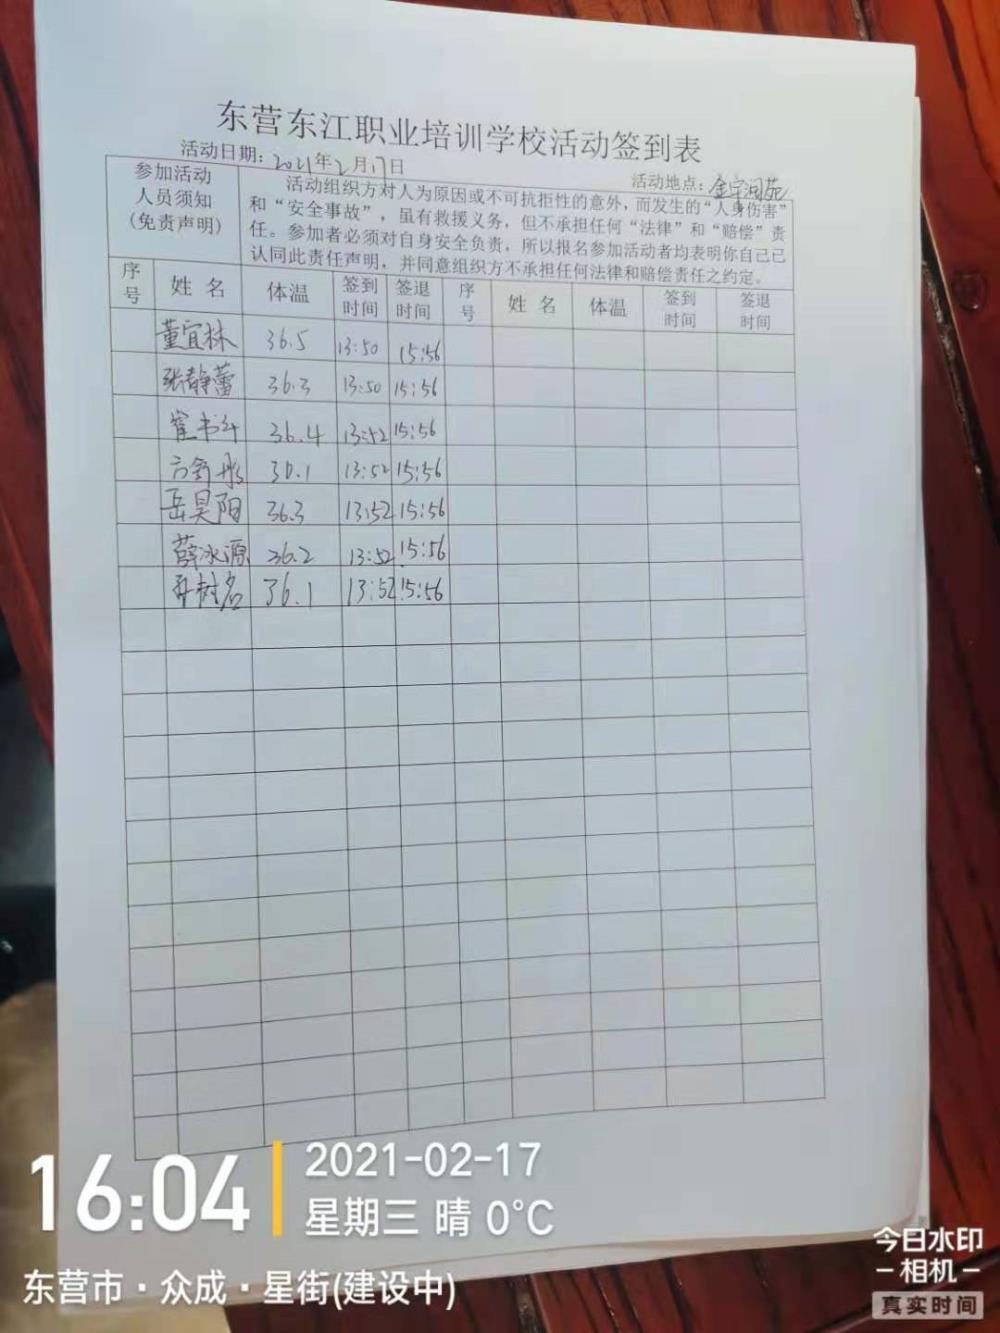 东营东江职业培训学校活动签到表
活动日期：2021年2月17日 活动地点：
参加活动
人员须知
(免责声明)
活动组织方对人为原因或不可抗拒性的意外，而发生的“人身伤害”
和“安全事故”，虽有救援义务，但不承担任何“法律”和“赔偿”责
任。参加者必须对自身安全负责，所以报名参加活动者均表明你自己已
认同此责任声明，并同意组织方不承担任何法律和赔偿责任之约定。
序号 姓名 体温 签到时间 签退时间 序号 姓名 体温 签到时间 签退时间
董宜林 36.5 13:50 15:56
张静蕾 36.3 13:50 15:56
崔书 36.4 13:52 15:56
方舒彤 13:52 15:56
岳昊阳 36.3 13:52 15:56
薛冰源 36.2 13:52 15:56
树名 36.1 13:52 15:56
16:04
2021-02-17
星期三 晴 0°C
东营市·众成·星街(建设中)
今日水印
-相机-
真实时间